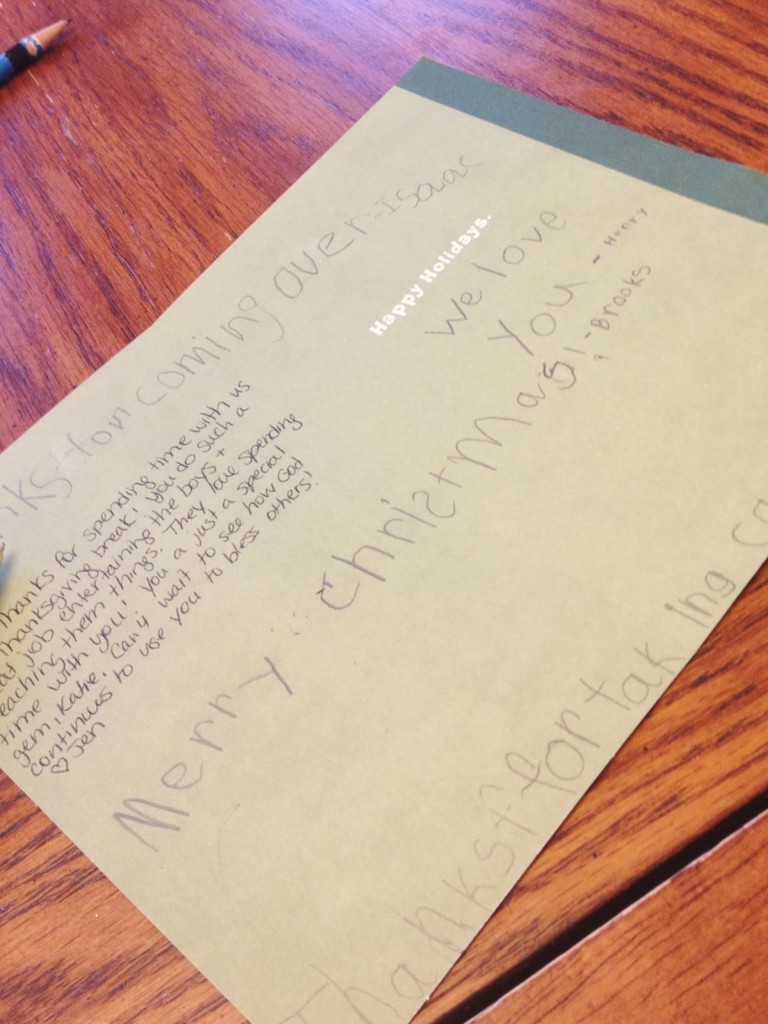 coming over-Isaac
Happy Holidays.
We love
You - Henry
Thanks for spending time with us
Thanksgiving break! You do such a
job entertaining the boys +
teaching them things. They love spending
time with you! You a just a special
gem, Katie. Can't wait to see how God
continues to use you to bless others!
♡ Jen
Merry Christmas! -Brooks
Thanks for taking